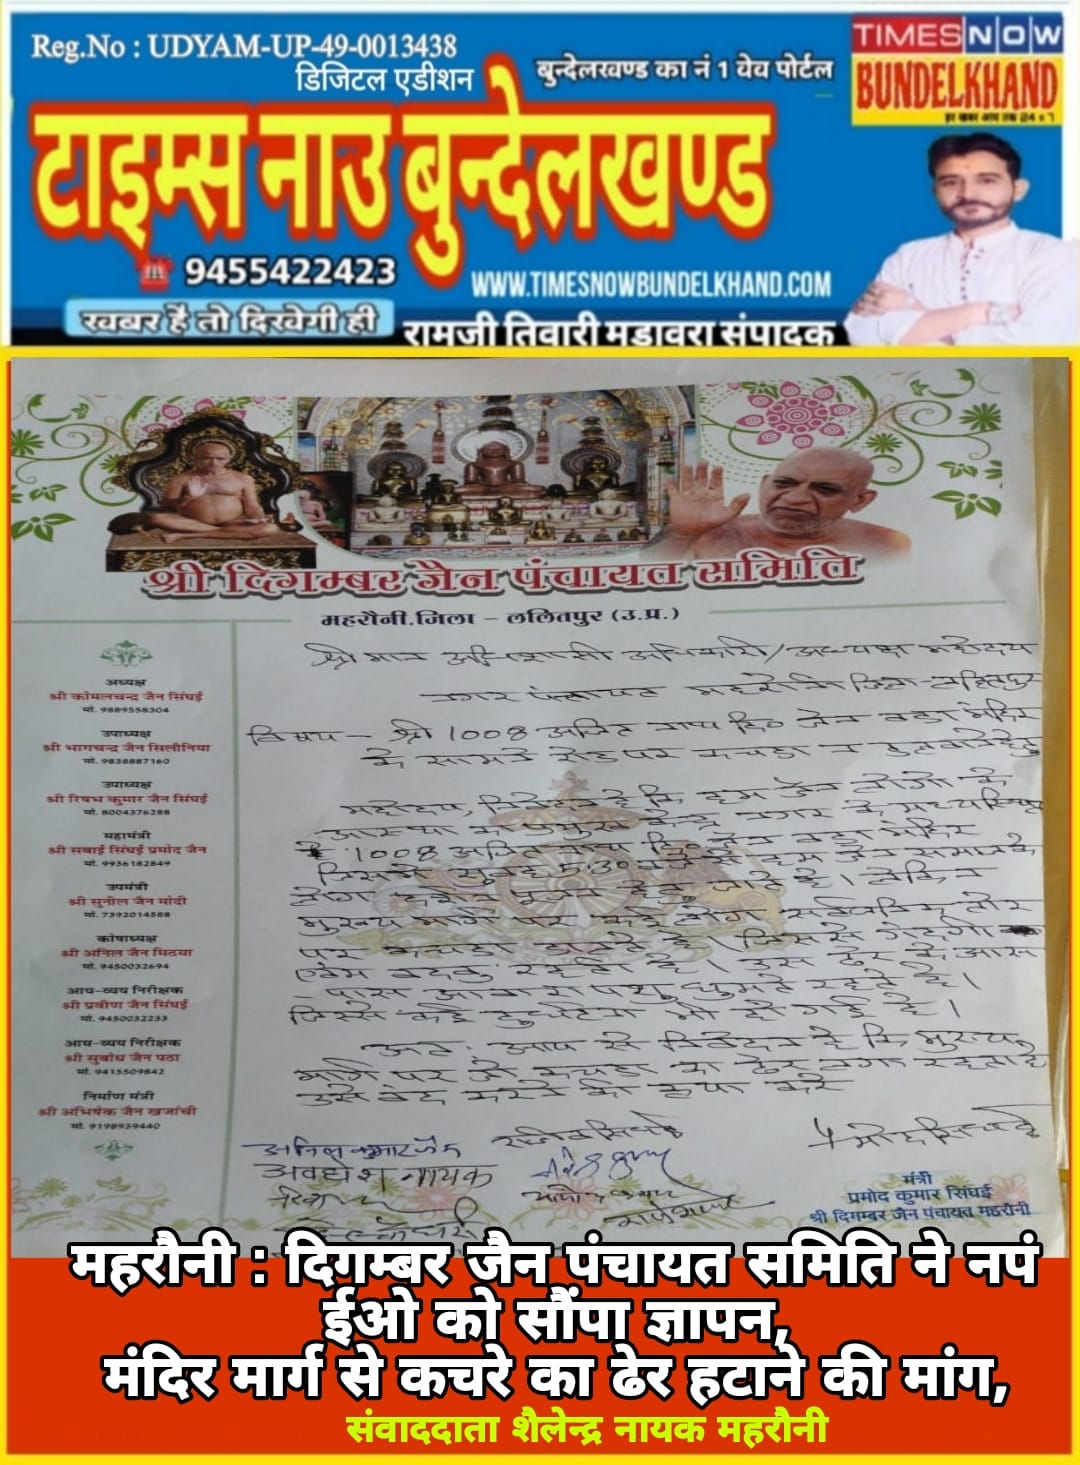 Reg.No : UDYAM-UP-49-0013438
डिजिटल एडीशन
बुन्देलखण्ड का नं 1 वेव पोर्टल
TIMES NOW
BUNDELKHAND
हर खबर आप तक 24 x 7
टाइम्स नाउ बुन्देलखण्ड
9455422423
WWW.TIMESNOWBUNDELKHAND.COM
खबर है तो दिखेगी ही
रामजी तिवारी मडावरा संपादक
श्री दिगम्बर जैन पंचायत समिति
महरौनी,जिला - ललितपुर (उ.प्र.)
अध्यक्ष
श्री कोमलचन्द्र जैन सिंघई
मो. 9889558304
उपाध्यक्ष
श्री भागचन्द्र जैन सिलौनिया
मो. 9838887160
उपाध्यक्ष
श्री रिषभ कुमार जैन सिंघई
मो. 8004376288
महामंत्री
श्री सवाई सिंघई प्रमोद जैन
मो. 9936182849
उपमंत्री
श्री सुनील जैन मोदी
मो. 7392014588
कोषाध्यक्ष
श्री अनिल जैन मिठया
मो. 9450032694
आय-व्यय निरीक्षक
श्री प्रवीण जैन सिंघई
मो. 9450032233
आय-व्यय निरीक्षक
श्री सुबोध जैन पठा
मो. 9415509842
निर्माण मंत्री
श्री अभिषेक जैन खजांची
मो. 9198939440
श्री मान अधिशासी अधिकारी/अध्यक्ष महोदय
नगर पंचायत महरौनी जिला-ललितपुर
विषय - श्री 1008 अजित नाथ दि० जैन बडा मंदिर
के सामने रोड पर कचडा न डलवाने हेतु
महोदय, निवेदन है कि हम जैन लोगो के
आस्था का प्रमुख केन्द्र नगर के मध्य स्थित
है 1008 अजित नाथ दि० जैन बडा मंदिर
जिसमें सुबह 5:30 बजे से हम जैन समाज के
लोग दर्शन पूजन हेतु जाते है। लेकिन
मुख्य मार्ग पर कई लोग सार्वजनिक तौर
पर कचडा डालते है। जिससे गंदगी
एवम बदबू रहती है। उस ढेर के आस
-पास आवारा पशु घुमते रहते है।
जिससे कई दुर्घटना भी हो गई है।
अतः आप से निवेदन है कि मुख्य
मार्ग पर जो कचडा का ढेर लगा रहता है
उसे बंद करने की कृपा करे
अनिल कुमार जैन
अवधेश नायक
मंत्री
प्रमोद कुमार सिंघई
श्री दिगम्बर जैन पंचायत महरौनी
महरौनी : दिगम्बर जैन पंचायत समिति ने नपं
ईओ को सौंपा ज्ञापन,
मंदिर मार्ग से कचरे का ढेर हटाने की मांग,
संवाददाता शैलेन्द्र नायक महरौनी